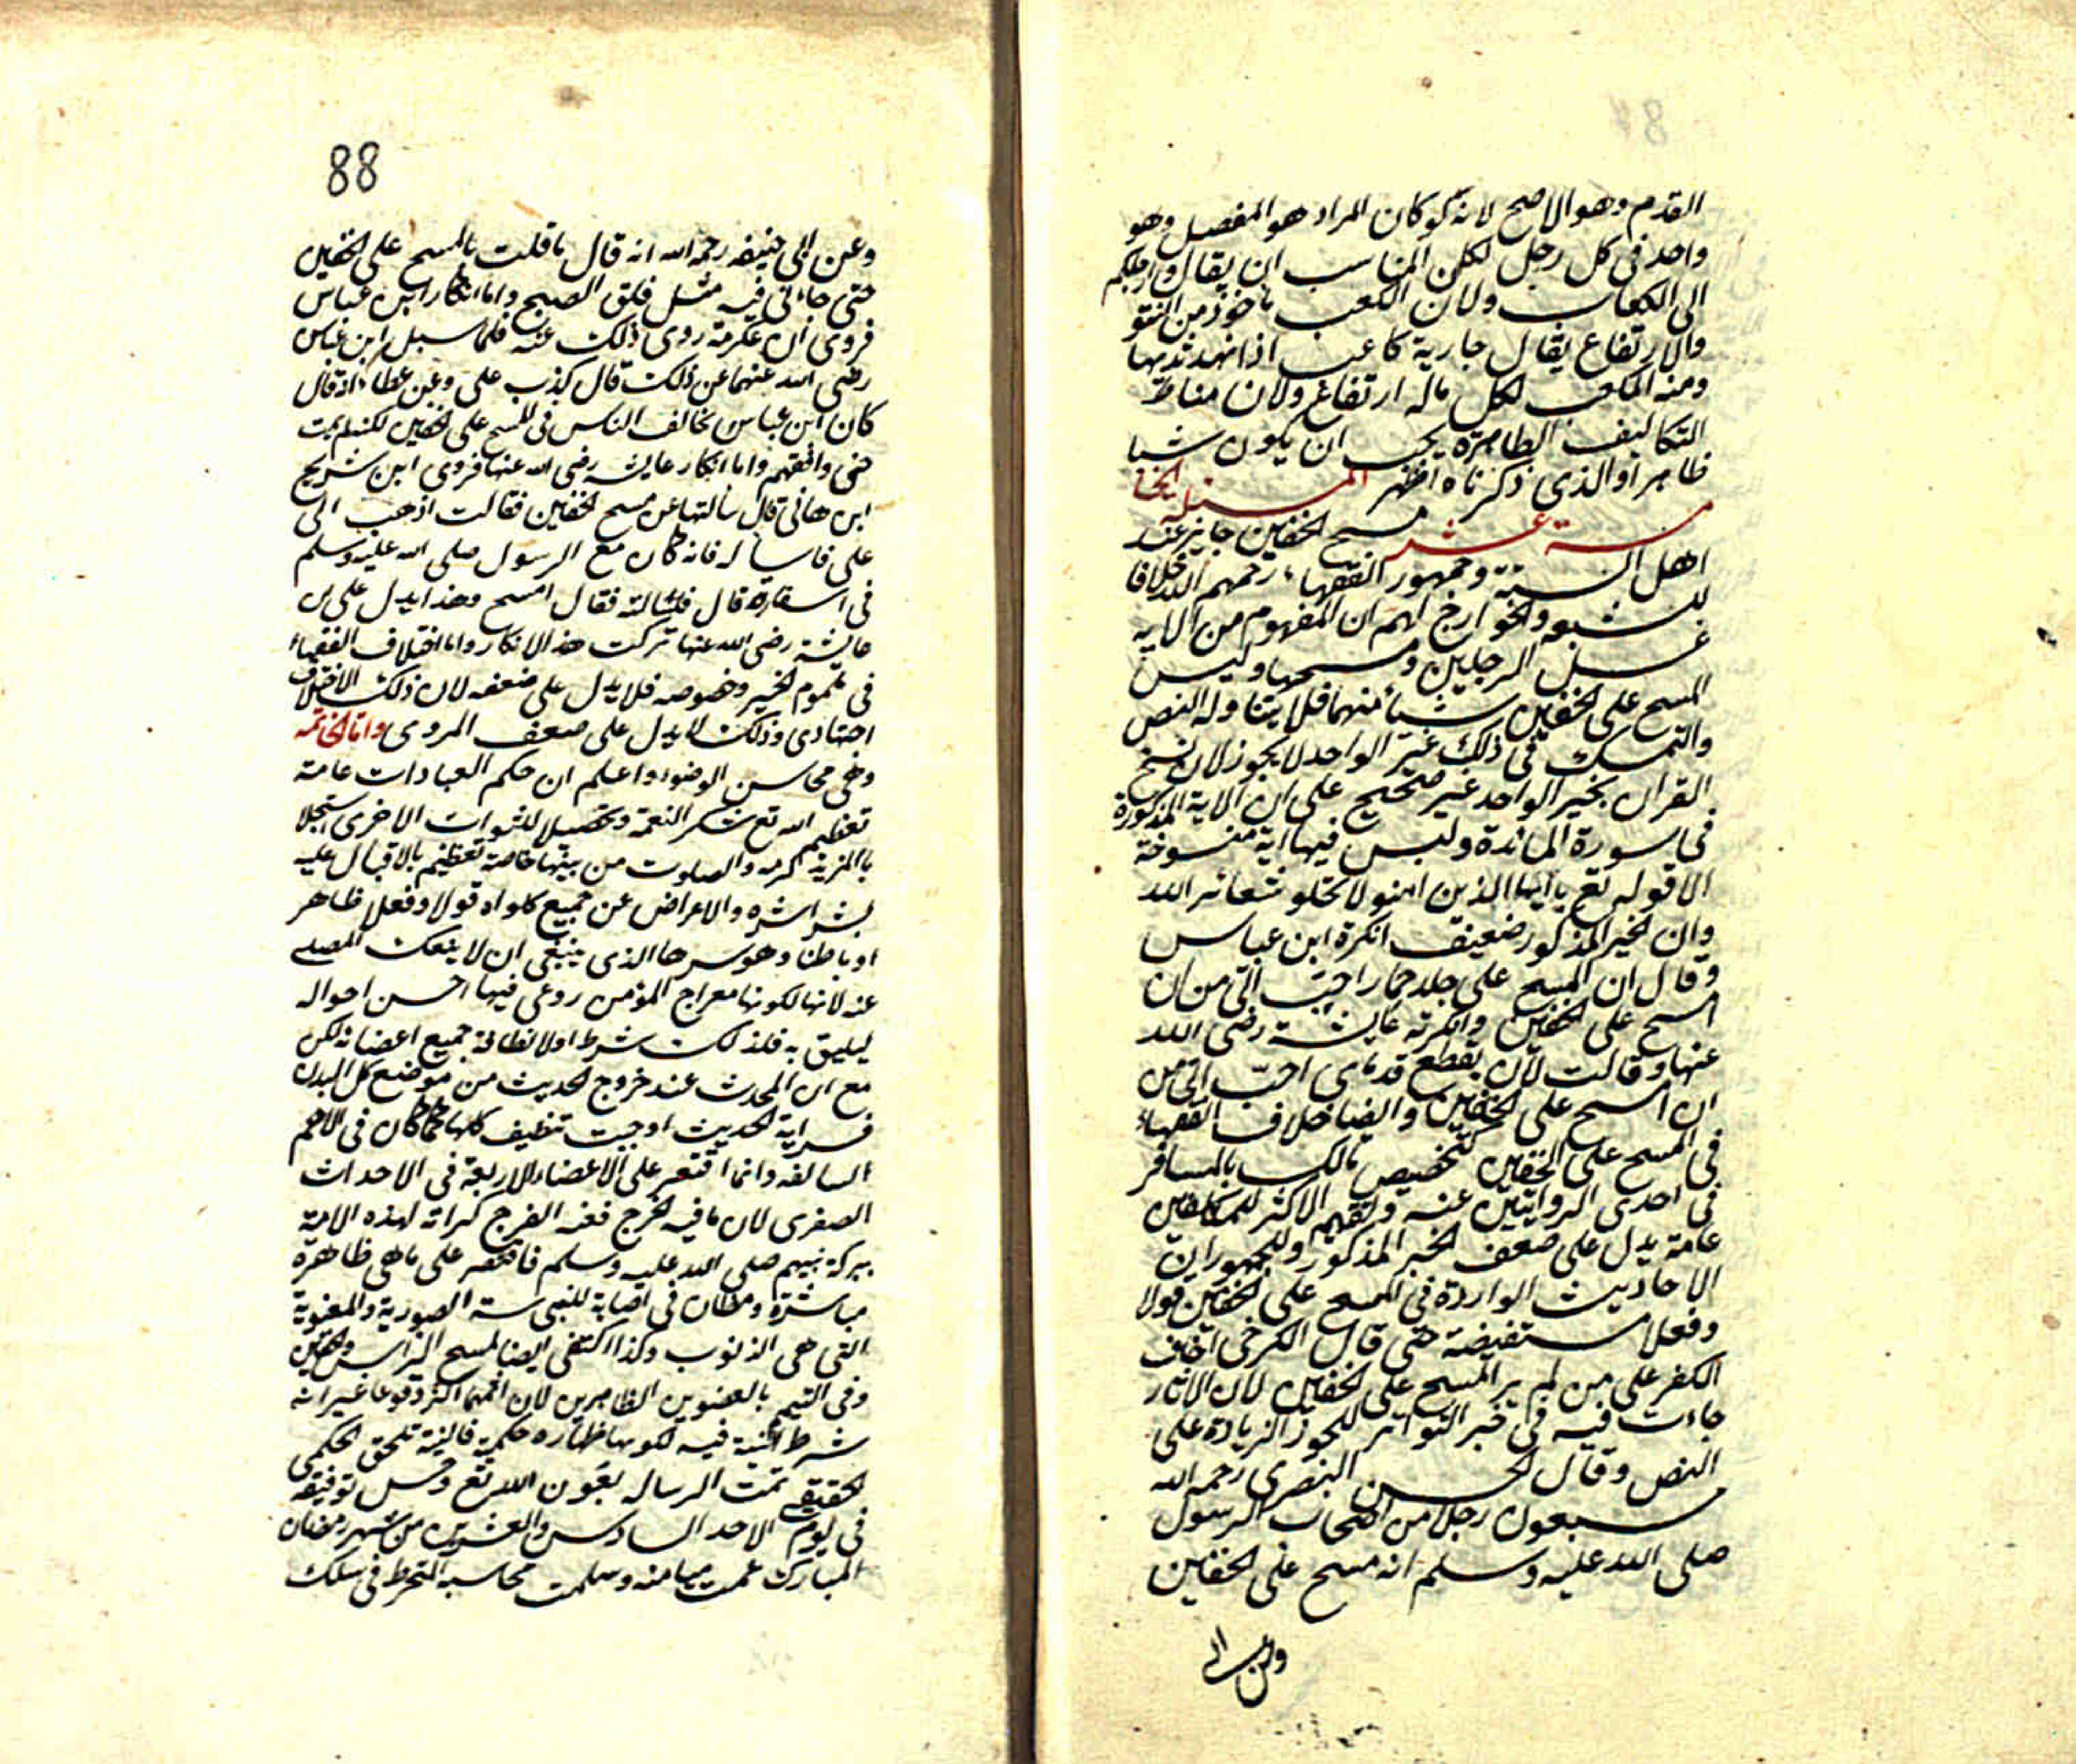 القدم وهو الاصح لانه لو كان المراد هو المفصل وهو
واحد فى كل رجل لكن المناسب ان يقال وارجلكم
الى الكعاب ولان الكعب ماخوذ من النتو
والارتفاع يقال جارية كاعب اذا نهد ثديها
ومنه المكعب لكل ماله ارتفاع ولان مناط
التكاليف الظاهرة يجب ان يكون شيا
ظاهرا والذى ذكرناه اظهر المسئلة الخا
مسة عشر مسح الخفين جايز عند
اهل السنة وجمهور الفقهاء رحمهم الله خلافا
للشيعه والخوارج لهم ان المفهوم من الايه
غسل الرجلين ومسحها وليس
المسح على الخفين شيأ منهما فلا يتناوله النص
والتمسك فى ذلك خبر الواحد لا يجوز لان نسخ
القران بخبر الواحد غير صحيح على ان الاية المذكورة
فى سورة المائدة وليس فيها اية منسوخة
الا قوله تع يا ايها الذين امنو لا تحلو شعائر الله
وان الخبر المذكور ضعيف انكرة ابن عباس
وقال ان المسح على جلد حمار احب الى من ان
امسح على الخفين وانكرته عايشة رضى الله
عنها وقالت لان يقطع قدماى احب الى من
ان امسح على الخفين وايضا خلاف الفقهاء
فى المسح على الخفين كتخصيص مالك بالمسافر
فى احدى الروايتين عنه الاكثر للمكلفين
عامة يدل على ضعف الخبر المذكور وللجمهور ان
الاحاديث الواردة فى المسح على الخفين قولا
وفعلا مستفيضة حتى قال الكرخى اخاف
الكفر على من لم ير المسح على الخفين لان الاثار
جاءت فيه فى خبر التواتر الزيادة على
النص وقال الحسن البصرى رحمه الله
سبعون رجلا من اصحاب الرسول
صلى الله عليه وسلم انه مسح على الخفين
وعن ابى
88
وعن ابى حنيفه رحمه الله انه قال ما قلت بالمسح على الخفين
حتى جاءنى فيه مثل فلق الصبح واما انكار ابن عباس
فروى ان عكرمة روى ذلك عنه فلما سيل ابن عباس
رضى الله عنهما عن ذلك قال كذب على وعن عطاء انه قال
كان ابن عباس يخالف الناس فى المسح على الخفين لكنه لم يمت
حتى وافقهم واما انكار عايشه رضى الله عنها فروى ابن شريح
ابن هانى قال سألتها عن مسح الخفين فقالت اذهب الى
على فاساله فانه كان مع الرسول صلى الله عليه وسلم
فى اسفاره قال فسألته فقال امسح وهذا يدل على ان
عايشة رضى الله عنها تركت هذا الانكار واما اختلاف الفقهاء
فى عموم الخبر وخصوصه فلا يدل على ضعفه لان ذلك الاختلاف
اجتهادى وذلك لا يدل على ضعف المروى واما الخاتمه
وهى محاسن الوضوء واعلم ان حكم العبادات عامة
تعظيم الله تع شكر النعمة وتحصيلا للثواب الاخرى
كرمه والصلوت من بينها خاصة تعظيم بالاقبال عليه
بشراشره والاعراض عن جميع ما سواه قولا وفعلا ظاهر
او باطنا وهو سرها الذى ينبغى ان لا ينفك المصلى
عنه لانها لكونها معراج المؤمن روعى فيها احسن احواله
ليليق به فلذلك شرط اولا نظافة جميع اعضائه لكن
مع ان المحدث عند خروج الحديث من موضع كل البدن
فسراية الحديث اوجبت تنظيف كلها كما كان فى الامم
السالفه وانما اقتصر على الاعضاء الاربعة فى الاحداث
الصغرى لان مافيه الحرج كرامة لهذه الامة
ببركة نبيهم صلى الله عليه وسلم فاقتصر على ماهى ظاهرة
مباشرة ومظان فى اصابة النجاسة الصورية والمعنوية
التى هى الذنوب وكذا اكتفى ايضا لمسح الراس والخفين
وفى التيمم بالعضوين الظاهرين لان اكثر وقوعا غير انه
شرط النية فيه لكونها طهاره حكمية فالنية تلحق الحكمى
بالحقيقى تمت الرساله بعون الله تع وحسن توفيقه
فى يوم الاحد السادس والعشرين من شهر رمضان
المبارك عمت ميامنه وسلمت محاسبه فى سلك